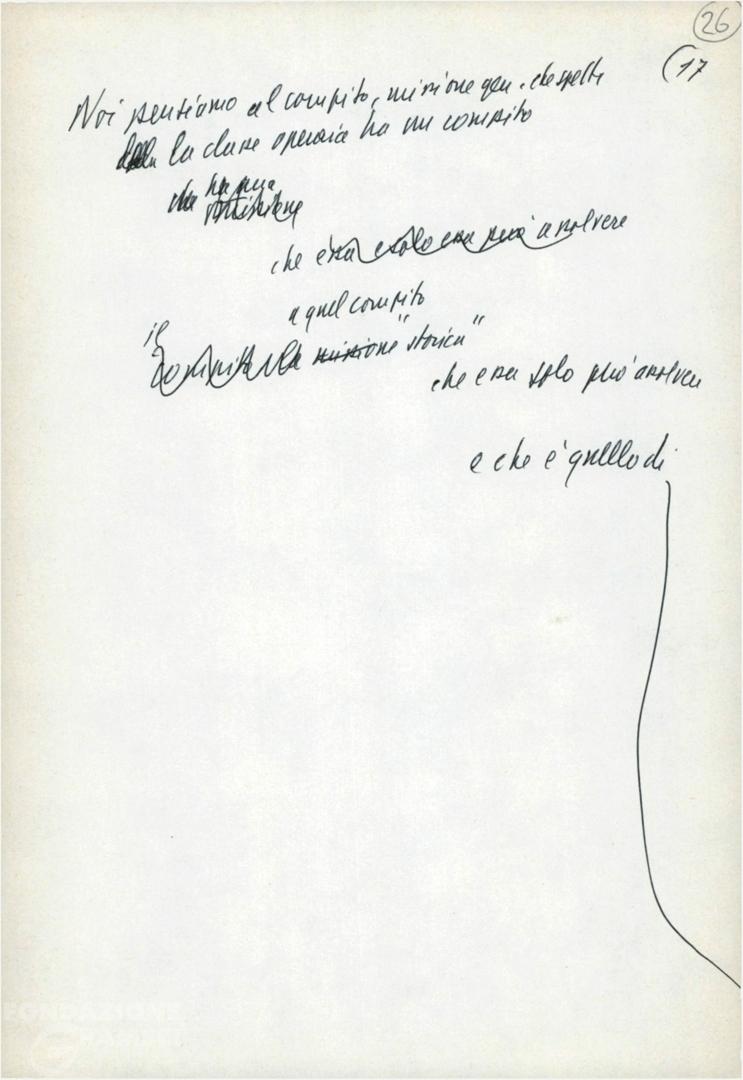 26
(17
Noi pensiamo al compito, missione gen. che spetta
la classe operaia ha un compito
che ha una
missione
che essa e solo essa può assolvere
a quel compito
il
compito la missione "storica"
che essa solo può assolvere
e che è quello di
FONDAZIONE